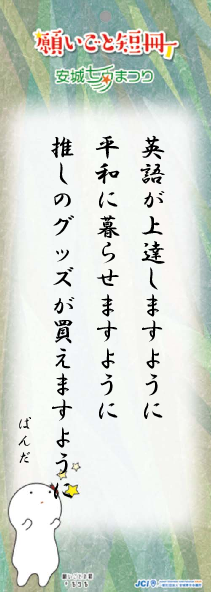 願いごと短冊
安城七夕まつり
英語が上達しますように
平和に暮らせますように
推しのグッズが買えますように
ぱんだ
JCI